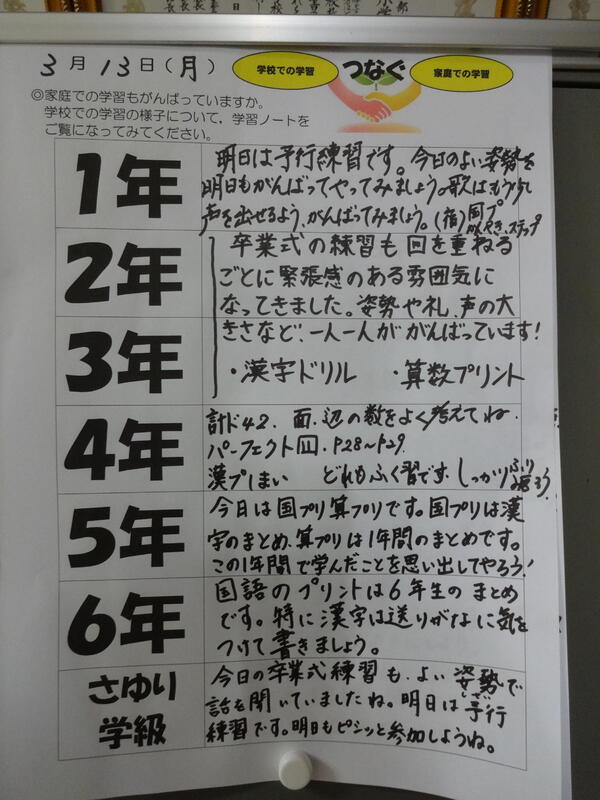 3月13日(月)
学校での学習 つなぐ 家庭での学習
◎家庭での学習もがんばっていますか。
学校での学習の様子について,学習ノートを
ご覧になってみてください。
1年
明日は予行練習です。今日のよい姿勢を
明日もがんばってやってみましょう。歌はもう少し
声を出せるよう、がんばってみましょう。(宿)国プ
ステップ
2年
3年
卒業式の練習も回を重ねる
ごとに緊張感のある雰囲気に
なってきました。姿勢や礼、声の大
きさなど、一人一人ががんばっています!
・漢字ドリル ・算数プリント
4年
計ド42. 面、辺の数をよく考えてね.
パーフェクト皿.P28~P29.
漢プしまい どれもふく習です.しっかりふり返ろう
5年
今日は国プリ算プリです。国プリは漢
字のまとめ、算プリは1年間のまとめです。
この1年間で学んだことを思い出してやろう!
6年
国語のプリントは6年生のまとめ
です。特に漢字は送りがなに気を
つけて書きましょう。
さゆり
学級
今日の卒業式練習も、よい姿勢で
話を聞いていましたね。明日は予行
練習です。明日もピシッと参加しようね。